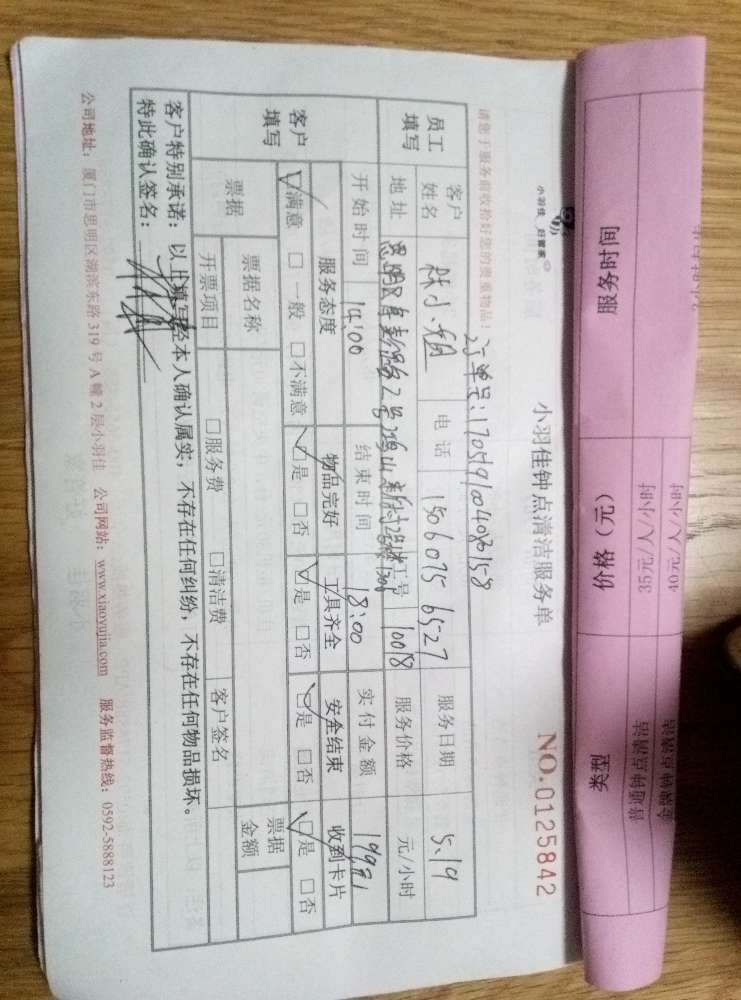 服务时间 价格（元） 类型
35元/人/小时 普通钟点清洁
40元/人/小时 金牌钟点清洁
小羽佳 好管家
小羽佳钟点清洁服务单 NO.0125842
请您于服务前收拾好您的贵重物品！
订单号:
员工填写
客户姓名 陈小姐 电话 15060756527 服务日期 5.19
地址 工号 10018 服务价格 元/小时
开始时间 14:00 结束时间 18:00 实付金额
客户填写
服务态度 物品完好 工具齐全 安全结束 收到卡片
☑满意 □一般 □不满意 ☑是 □否 ☑是 □否 ☑是 □否 ☑是 □否
票据 票据名称 票据金额
开票项目 □服务费 □清洁费 客户签名
客户特别承诺：以上填写经本人确认属实，不存在任何纠纷，不存在任何物品损坏。
特此确认签名：
公司地址：厦门市思明区湖滨东路319号A幢2层小羽佳 公司网站：www.xiaoyujia.com 服务监督热线：0592-5888123